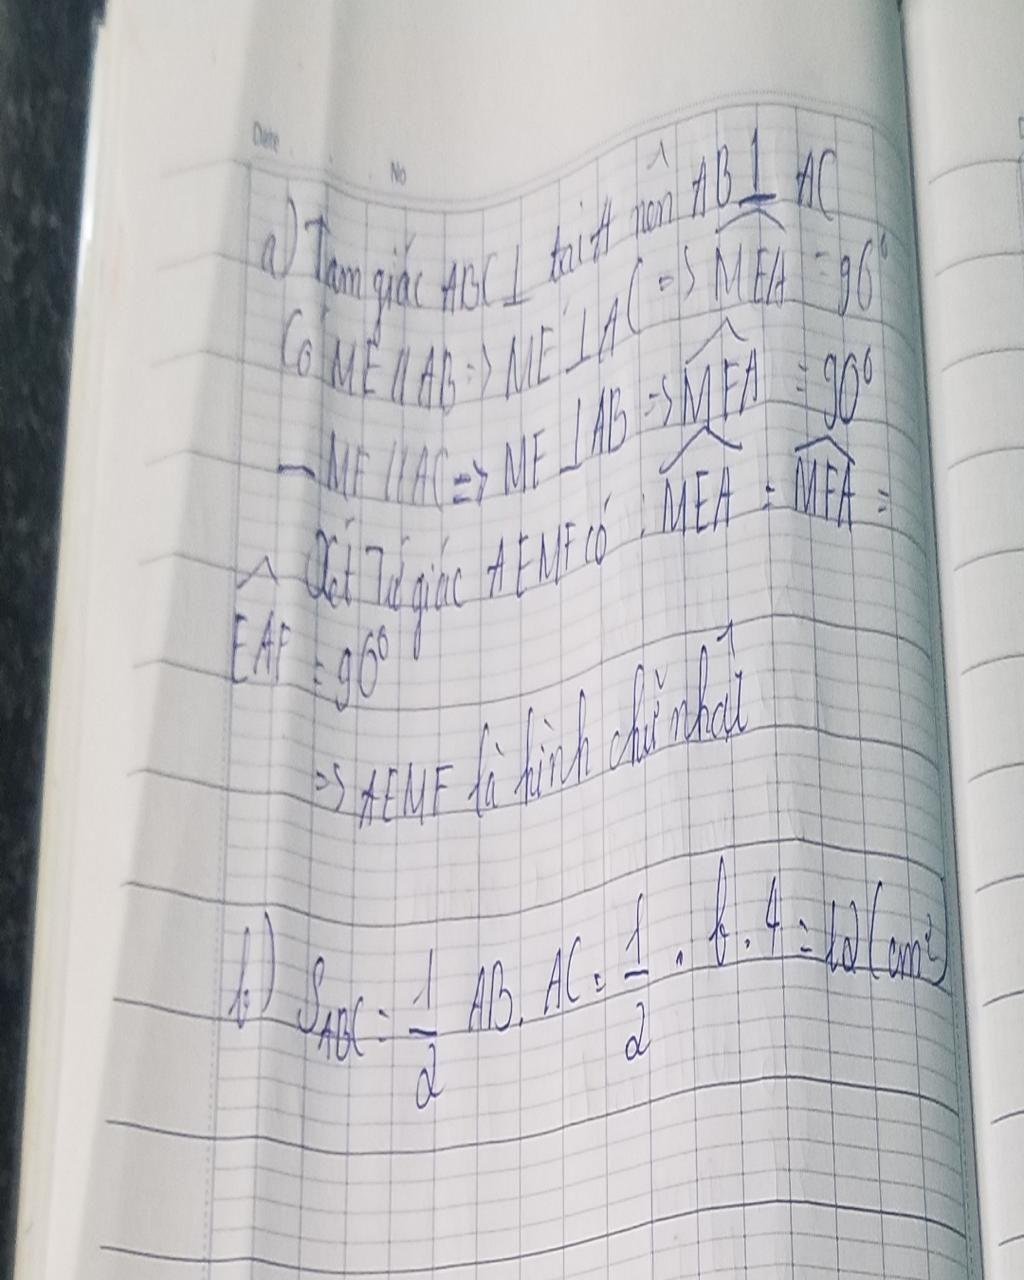 Date
No
a) Tam giác ABC ⊥ tại A nên AB ⊥ AC
Có ME // AB => ME ⊥ AC => MEA = 90⁰
- MF // AC => MF ⊥ AB => MFA = 90⁰
Xét Tứ giác AEMF có : MEA = MFA =
EAF = 90⁰
=> AEMF là hình chữ nhật
b) S_ABC = 1/2 AB. AC = 1/2 . 6 . 4 = 12 (cm²)